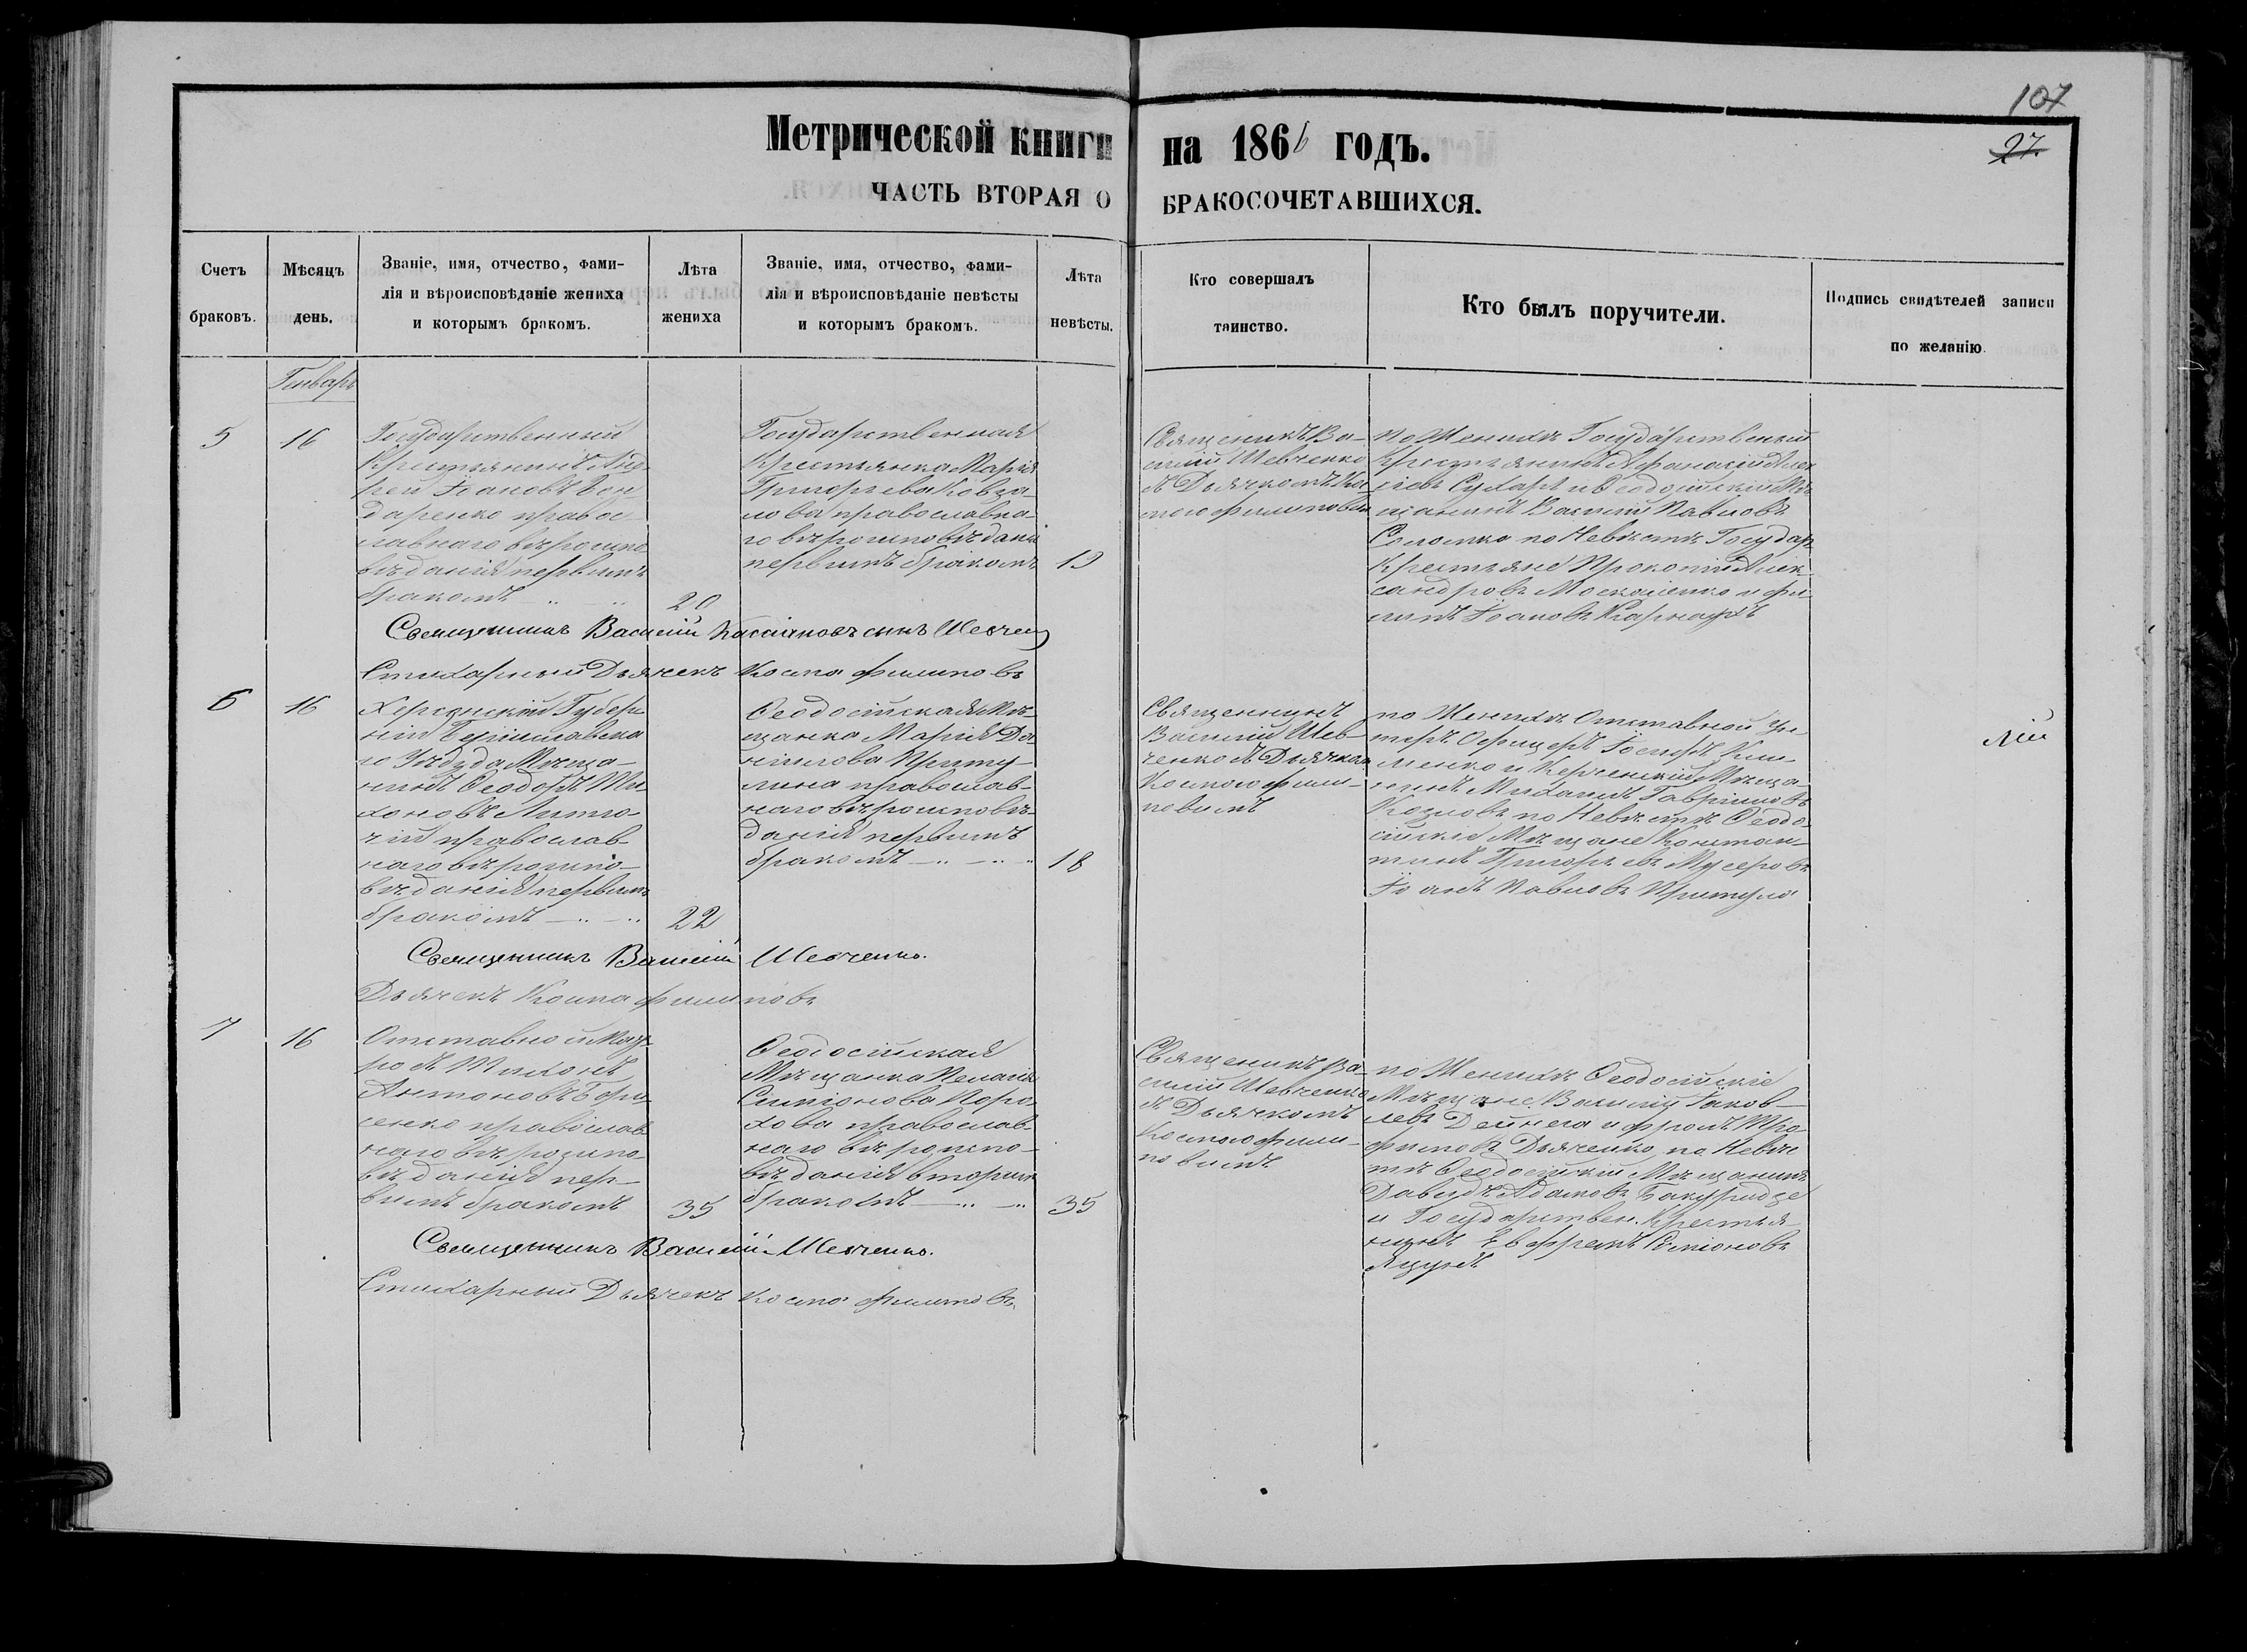 107
27.
Метрической книги на 1866 годъ.
ЧАСТЬ ВТОРАЯ О БРАКОСОЧЕТАВШИХСЯ.
Счетъ браковъ.
Мѣсяцъ день.
Званіе, имя, отчество, фами-
лія и вѣроисповѣданіе жениха
и которымъ бракомъ.
Лѣта жениха
Званіе, имя, отчество, фами-
лія и вѣроисповѣданіе невѣсты
и которымъ бракомъ.
Лѣта невѣсты.
Кто совершалъ
таинство.
Кто былъ поручители.
Подпись свидѣтелей записи
по желанію
Генварь
5
16
Государственный
Крестьянинъ Анд-
рей Іоановъ Бон-
даренко правос-
лавнаго вѣроиспо
вѣданія первымъ
бракомъ
20
Государственная
Крестьянка Марія
Григорьева
православна-
го вѣроисповѣданія
первымъ бракомъ
19
Священикъ Ва-
силій Шевченко
съ Дьячкомъ Кос-
мою Филиповым
по Женихѣ Государственый
Крестьянинъ Афанасій Алек
сѣевъ Сухарь и Ѳеодосійскій Мѣ
щанинъ Василій Павловъ
по Невѣстѣ Государ.
Крестьяне Прокопій Алек-
сандровъ Москаленко и Фи-
липъ Іоановъ Карнаухъ
Священникъ Василій Касіяновъ сынъ Шевчен
Стихарный Дьячекъ Косма Филиповъ
6
16
Херсонской Губер
ніи Бериславска
го Уѣзда Мѣща-
нинъ Ѳеодоръ Ти-
хоновъ
чій православ-
наго вѣроиспо-
вѣданія первымъ
бракомъ
22
Ѳеодосійская Мѣ-
щанка Марія Да-
ніилова Приту-
лина православ-
наго вѣроисповѣ-
данія первымъ
бракомъ
18
Священникъ
Василій Шев-
ченко съ Дьячком
Космою Фили-
повымъ
по Женихѣ Отставной Ун
теръ Офицеръ Іосифъ Кли
менко и Керченскій Мѣща-
нинъ Михаилъ Гавріиловъ
Козловъ по Невѣстѣ Ѳеодо-
сійскіе Мѣщане Констан-
тинъ Григорьевъ
Іоанъ Павловъ Притула
лій
Священникъ Василій Шевченко.
Дьячекъ Косма Филиповъ
7
16
Отставной Мат-
росъ Тихонъ
Антоновъ Бори
сенко православ
наго вѣроиспо-
вѣданія пер-
вымъ бракомъ
35
Ѳеодосійская
Мѣщанка Пелагія
Симіонова Поро
хова православ-
наго вѣроиспо-
вѣданія вторым
бракомъ
35
Священикъ Ва-
силій Шевченко
съ Дьячкомъ
Космою Фили-
повымъ
по Женихѣ Ѳеодосійскіе
Мѣщане Василій Іаков-
левъ Дейнега и Фролъ Тро-
фимовъ Дьяченко, по Невѣс
тѣ Ѳеодосійскій Мѣщанинъ
Давидъ Адамовъ Бакуридзе
и Государствен. Крестья-
нинъ Евфремъ Симіоновъ
Яцунъ
Священникъ Василій Шевченко.
Стихарный Дьячекъ Косма Филиповъ